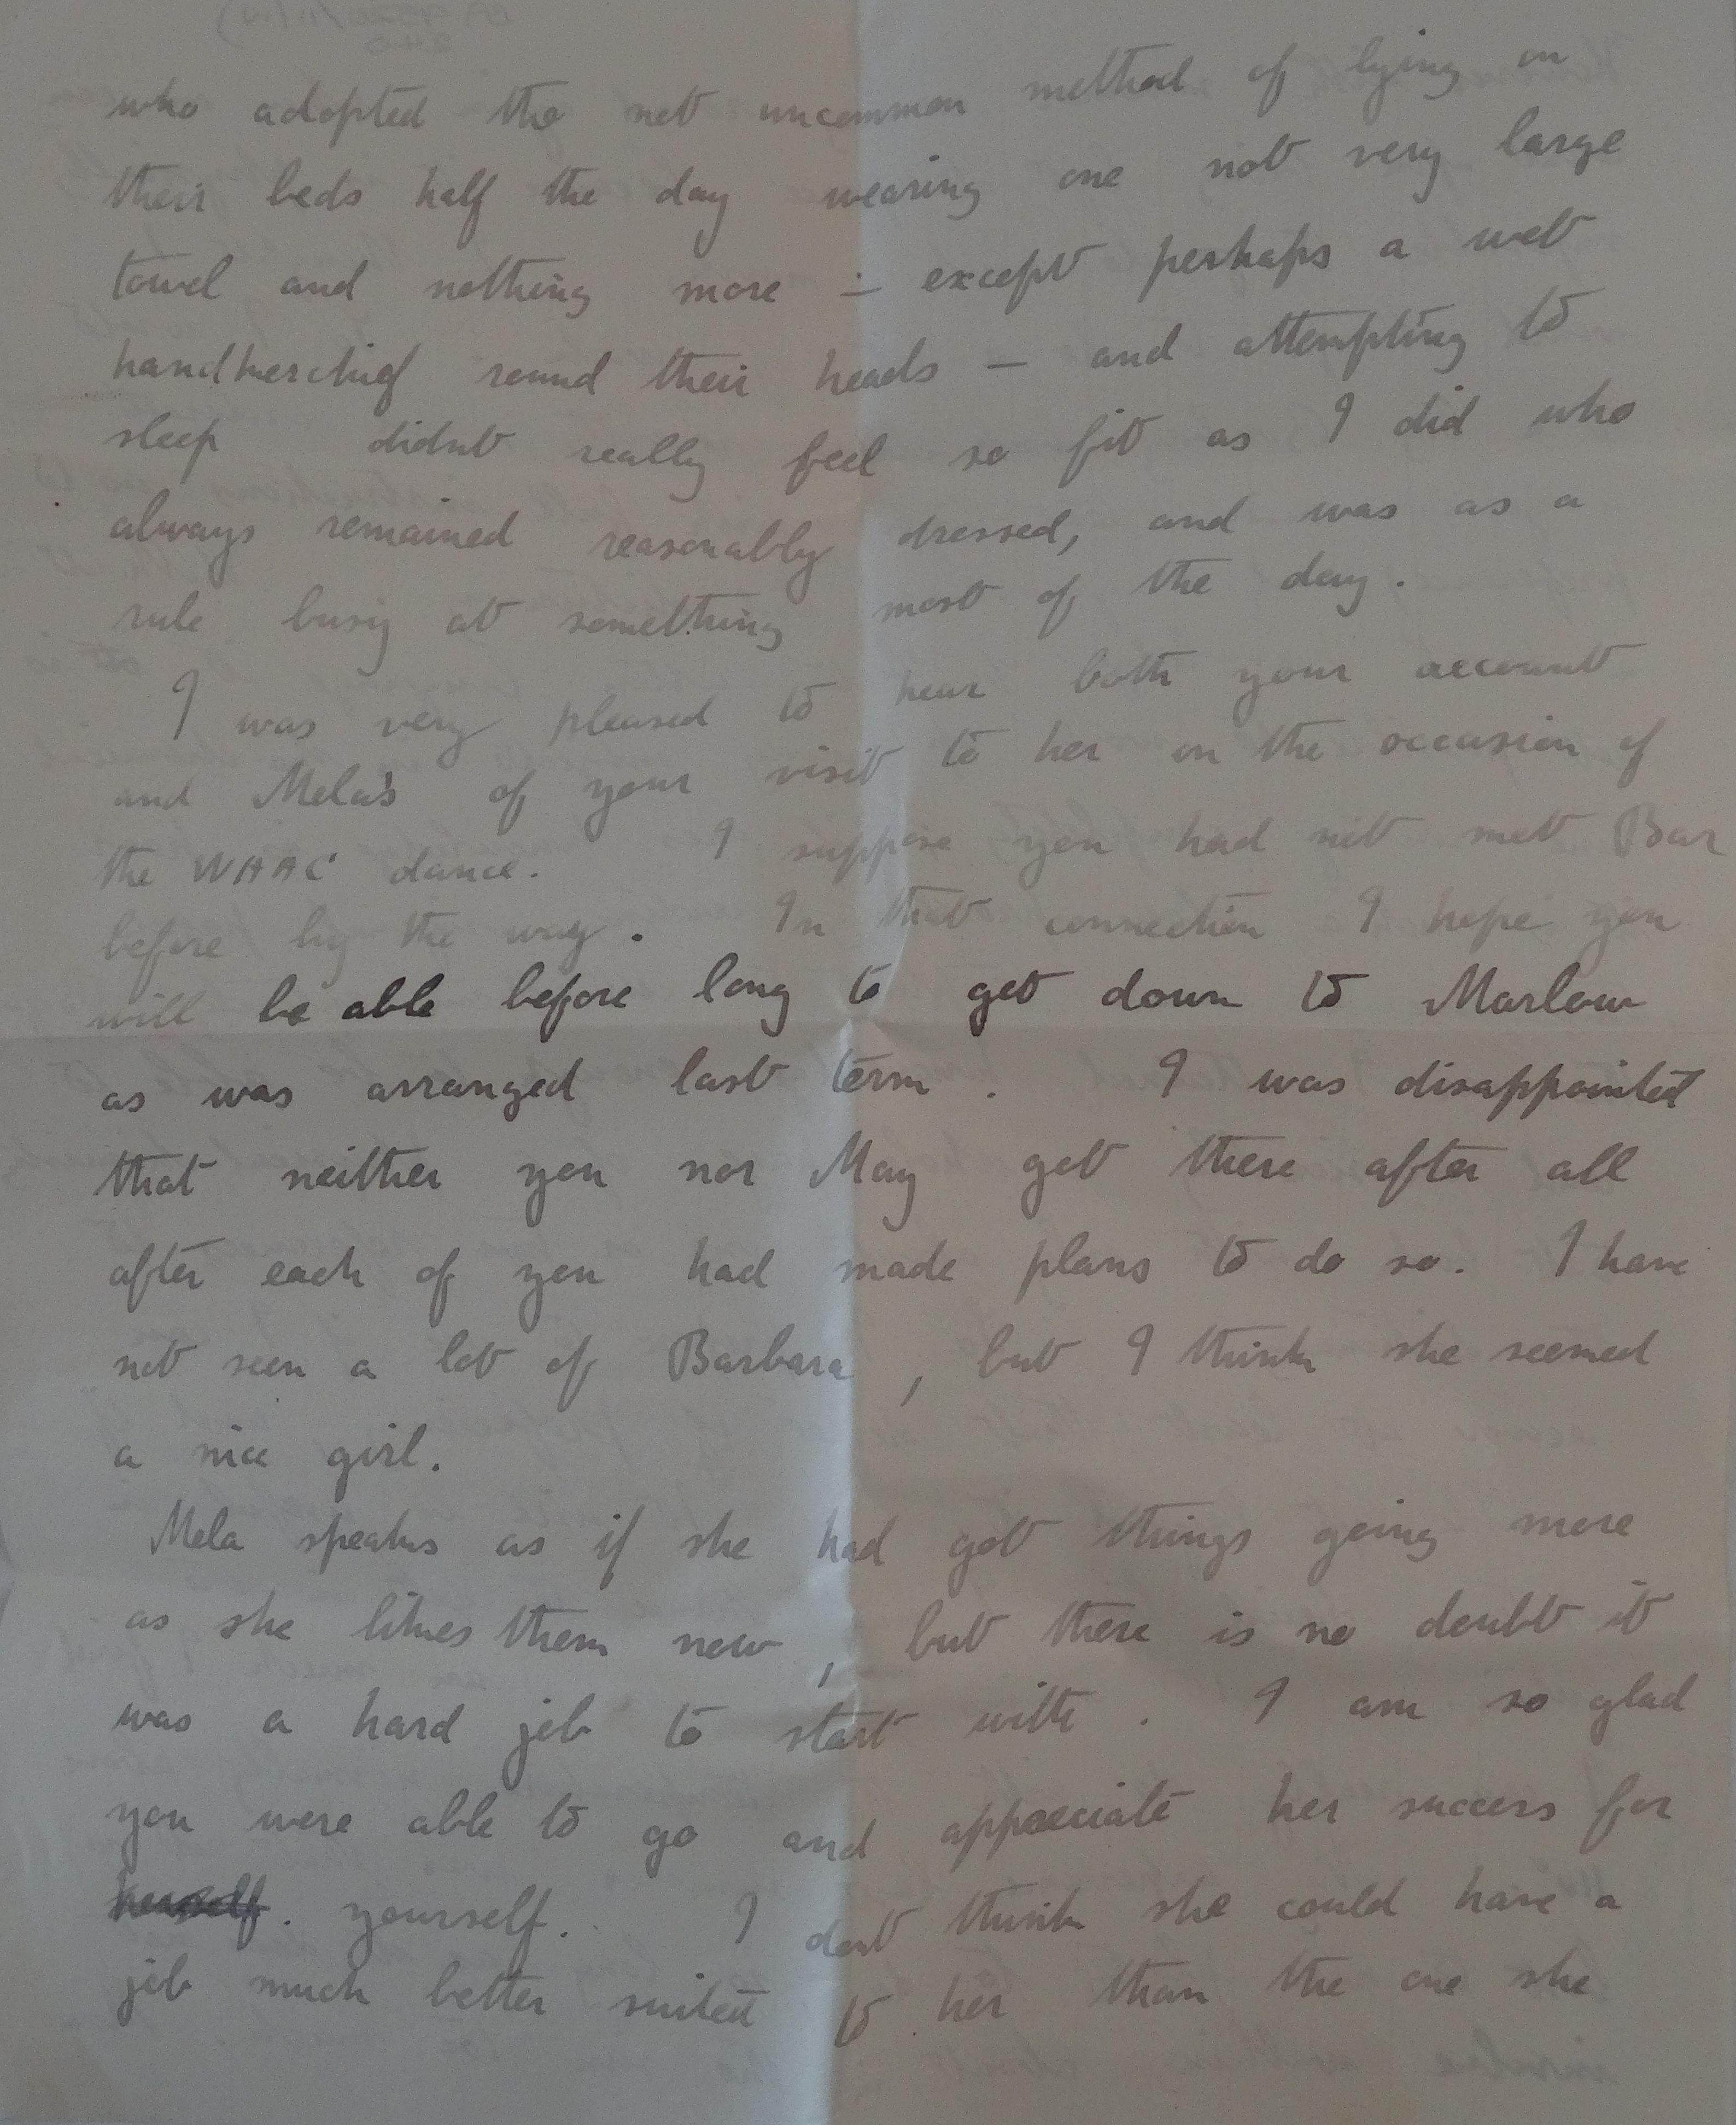 who adopted the not uncommon method of lying on
their beds half the day wearing one not very large
towel and nothing more – except perhaps a wet
handkerchief round their heads – and attempting to
sleep didnt really feel so fit as I did who
always remained reasonably dressed, and was as a
rule busy at something most of the day.
I was very pleased to hear both your account
and Mela's of your visit to her on the occasion of
the WAAC dance. I suppose you had not met Bar
before by the way. In that connection I hope you
will be able before long to get down to Marlow
as was arranged last term. I was disappointed
that neither you nor May got there after all
after each of you had made plans to do so. I have
not seen a lot of Barbara, but I think she seemed
a nice girl.
Mela speaks as if she had got things going more
as she likes them now, but there is no doubt it
was a hard job to start with. I am so glad
you were able to go and appreciate her success for
herself. yourself. I dont think she could have a
job much better suited to her than the one she